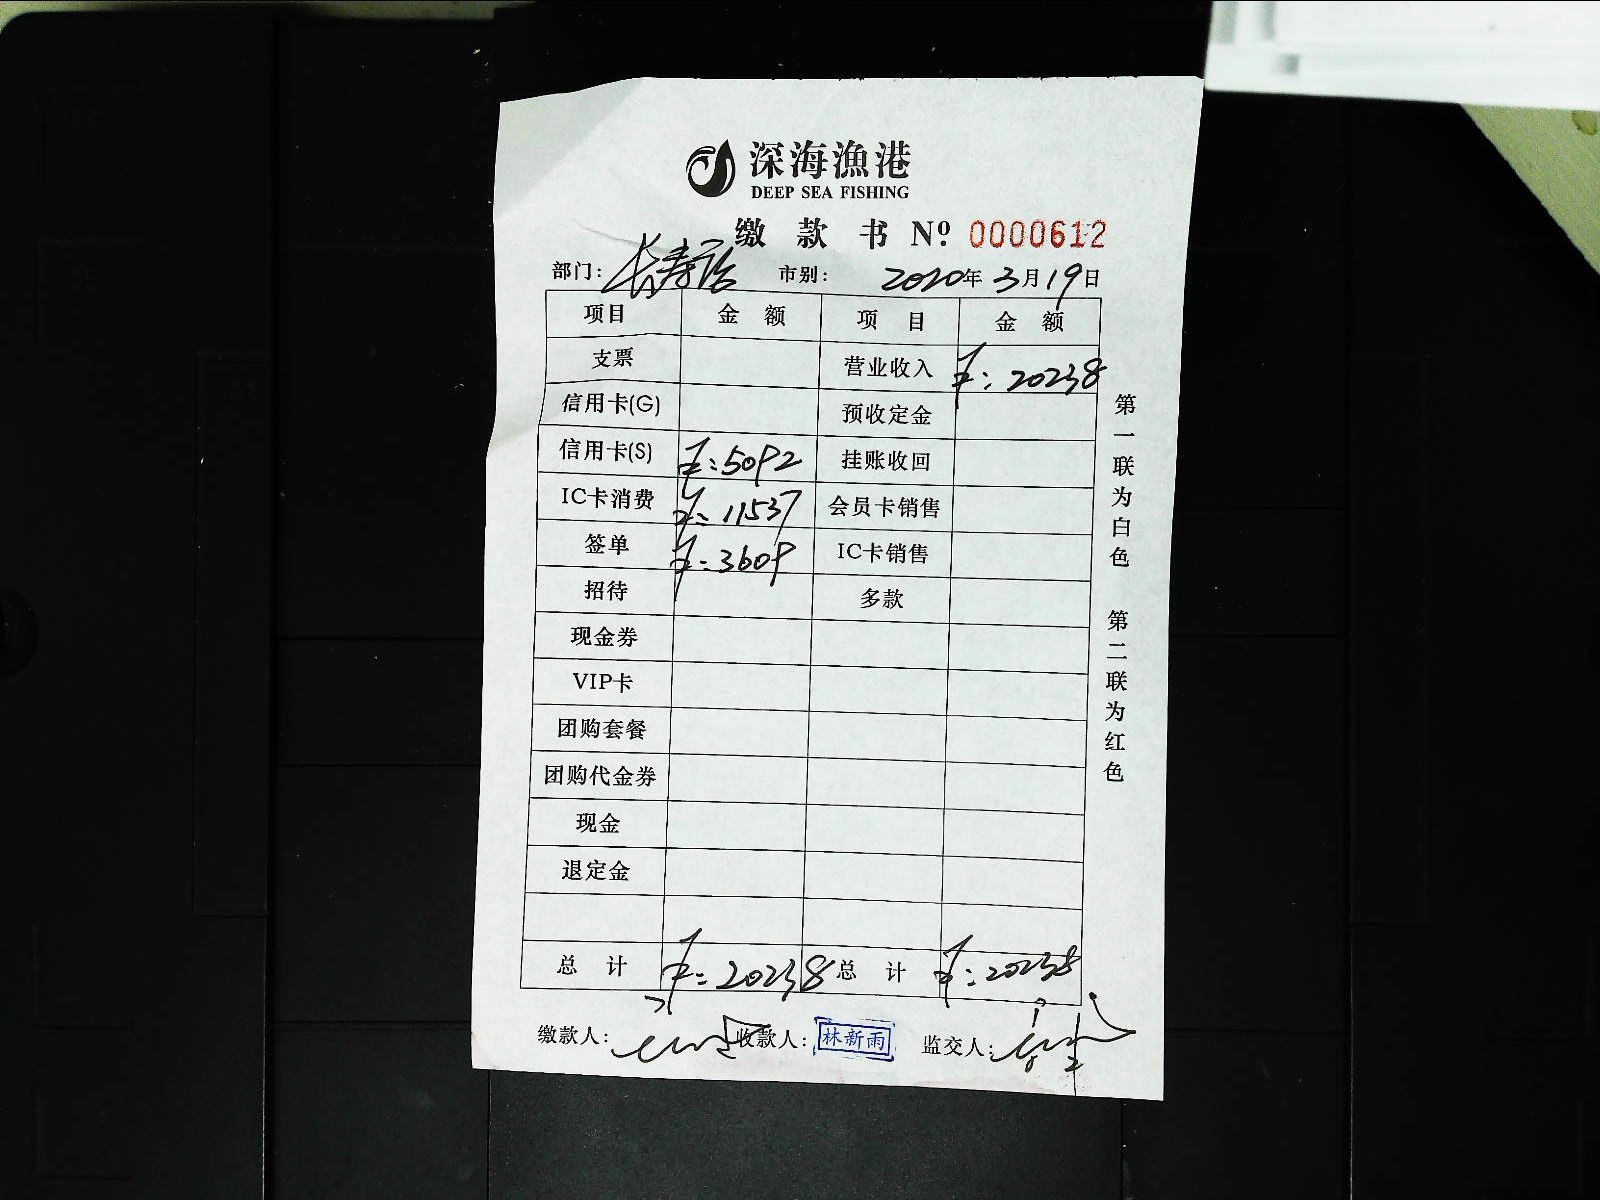 深海漁港
DEEP SEA FISHING
缴款书 Nº 0000612
部门: 长寿店 市别: 2020年3月19日
项目 金额 项目 金额
支票 营业收入 ¥:20238
信用卡(G) 预收定金
信用卡(S) ¥:5092 挂账收回
IC卡消费 ¥:11537 会员卡销售
签单 ¥:3609 IC卡销售
招待 多款
现金券
VIP卡
团购套餐
团购代金券
现金
退定金
总计 ¥:20238 总计 ¥:20238
缴款人: 收款人: 林新雨 监交人:
第一联为白色 第二联为红色